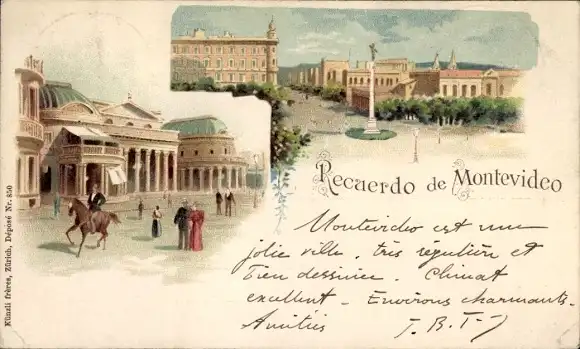 Recuerdo de Montevideo
Montevideo est une
jolie ville, très régulière et
bien dessinée. Climat
excellent. Environs charmants.
Amitiés T. B. T.
Künzli frères, Zürich, Déposé Nr. 850